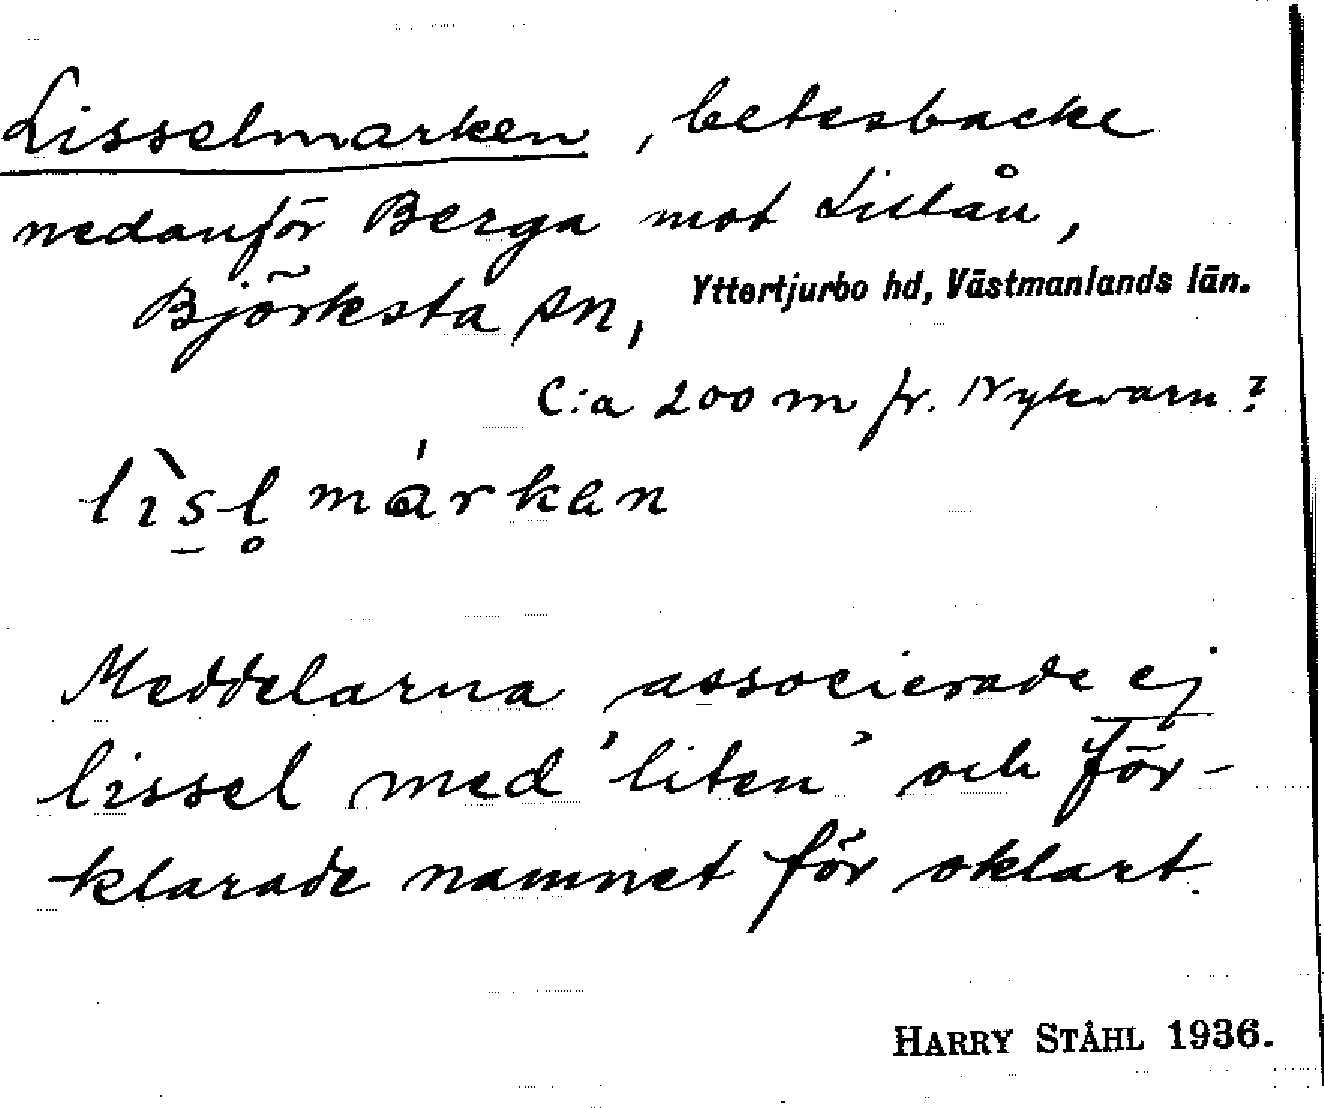 Lisselmarken, betesbacke
nedanför Berga mot Lillån,
Björksta sn, Yttertjurbo hd, Västmanlands län.
C:a 200 m fr. Nykvarn?
lìsl̥ márken
Meddelarna associerade ej
lissel med 'liten' och för-
klarade namnet för oklart.
HARRY STÅHL 1936.